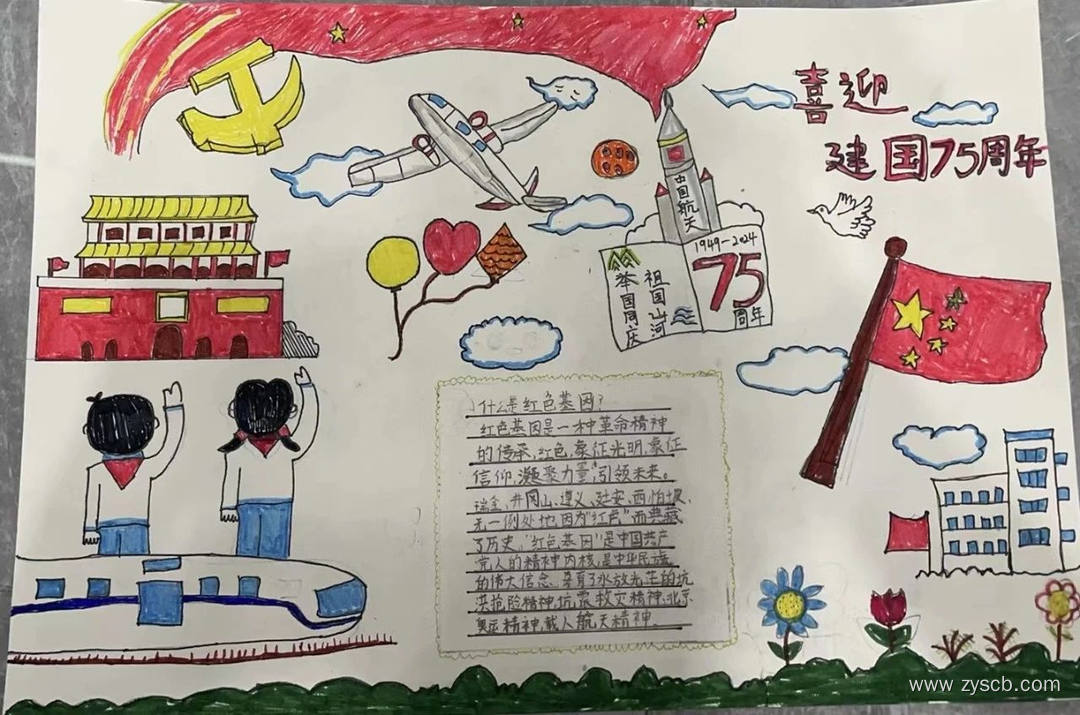 喜迎
建国75周年
中国航天
1949-2024
75
周年
祖国山河
举国同庆
什么是红色基因?
红色基因是一种革命精神
的传承,红色,象征光明,象征
信仰,凝聚力量,引领未来。
瑞金、井冈山、遵义、延安、西柏坡、
无一例处地,因为“红色”而典藏
了历史,“红色基因”是中国共产
党人的精神内核,是中华民族
的伟大信念
洪抢险精神,抗震救灾精神,北京
奥运精神,载人航天精神
www.zyscb.com